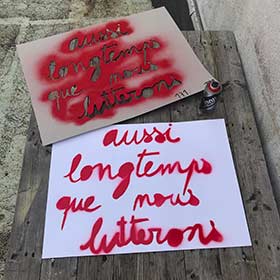 aussi
longtemps
que nous
lutterons
aussi
longtemps
que nous
lutterons